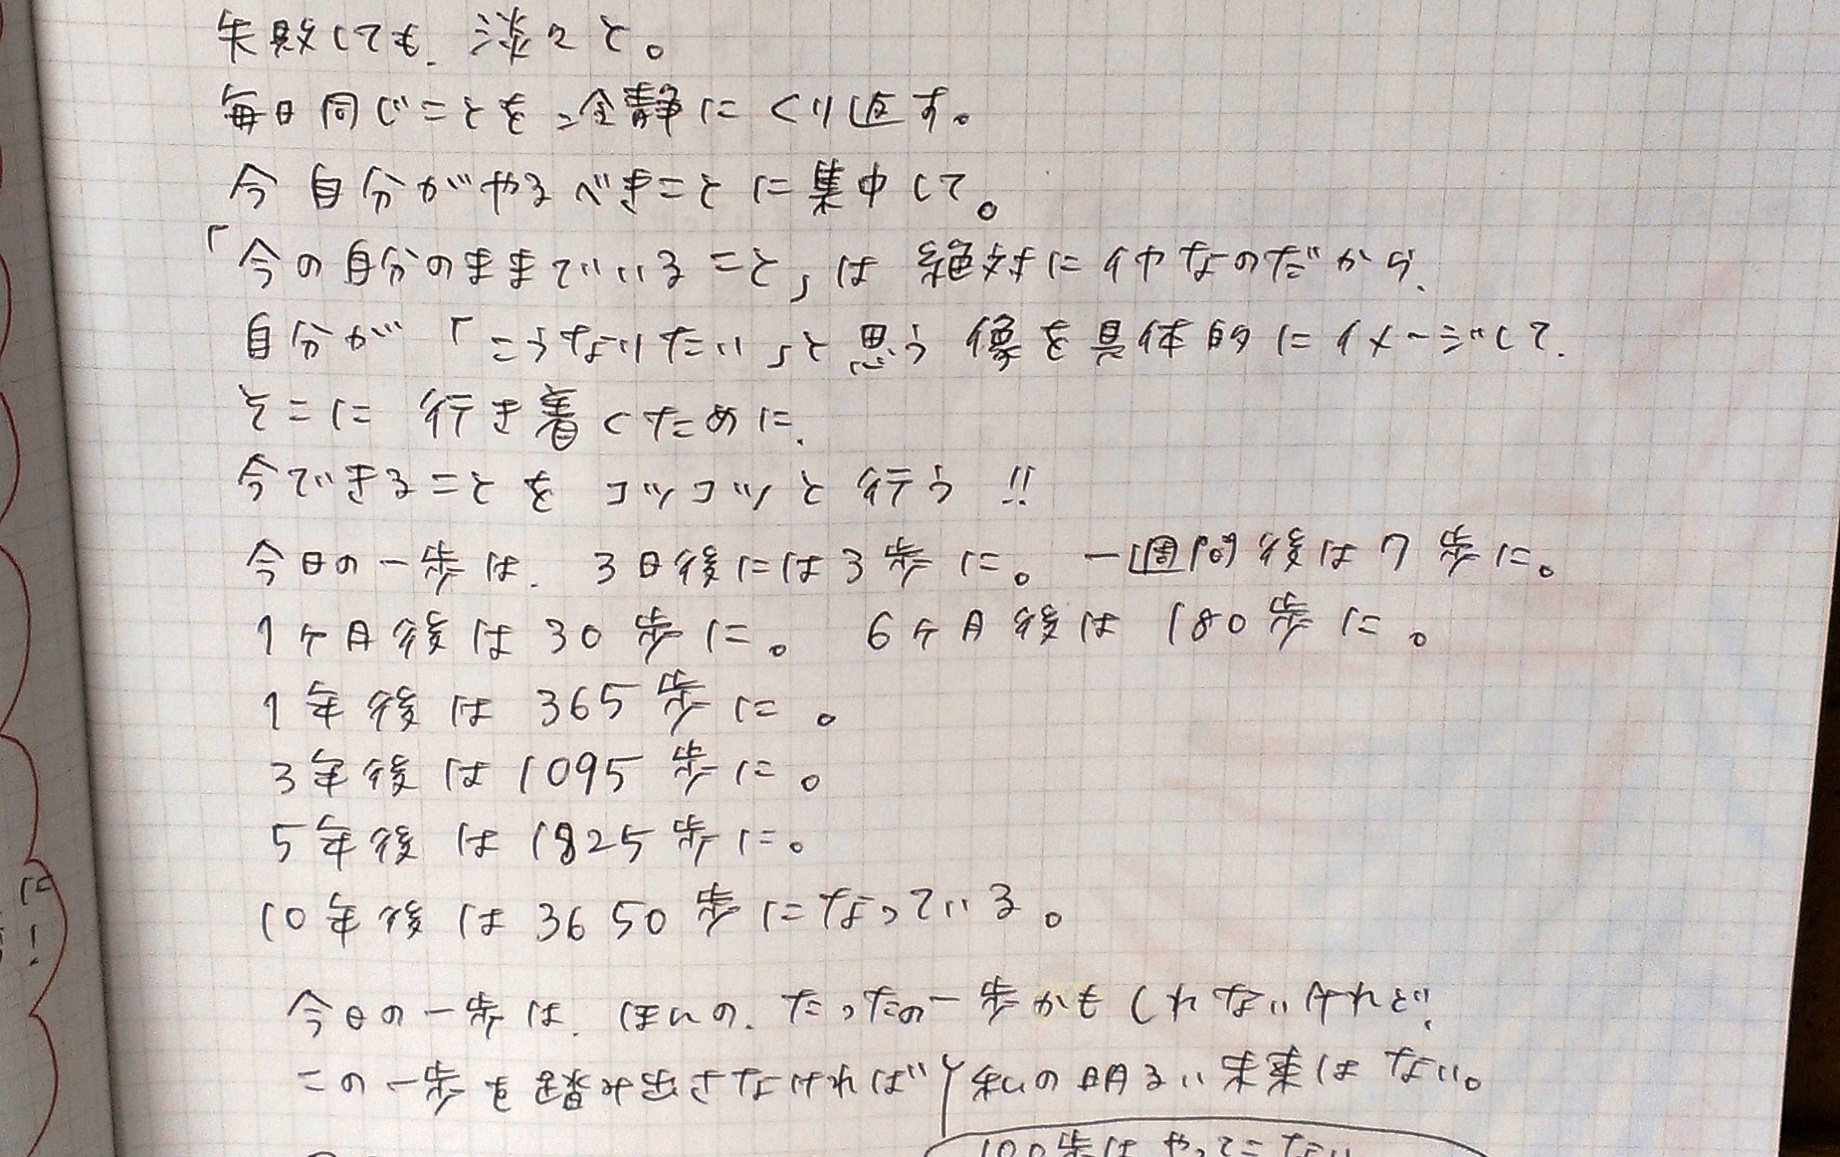 失敗しても、淡々と。
毎日同じことを冷静にくり返す。
今自分がやるべきことに集中して。
「今の自分のままでいること」は絶対にイヤなのだから、
自分が「こうなりたい」と思う像を具体的にイメージして、
そこに行き着くために、
今できることをコツコツと行う!!
今日の一歩は、3日後には3歩に。一週間後は7歩に。
1ヶ月後は30歩に。 6ヶ月後は180歩に。
1年後は365歩に。
3年後は1095歩に。
5年後は1825歩に。
10年後は3650歩になっている。
今日の一歩は、ほんの、たったの一歩かもしれないけれど、
この一歩を踏み出さなければ 私の明るい未来はない。
100歩はやってこない
に
!